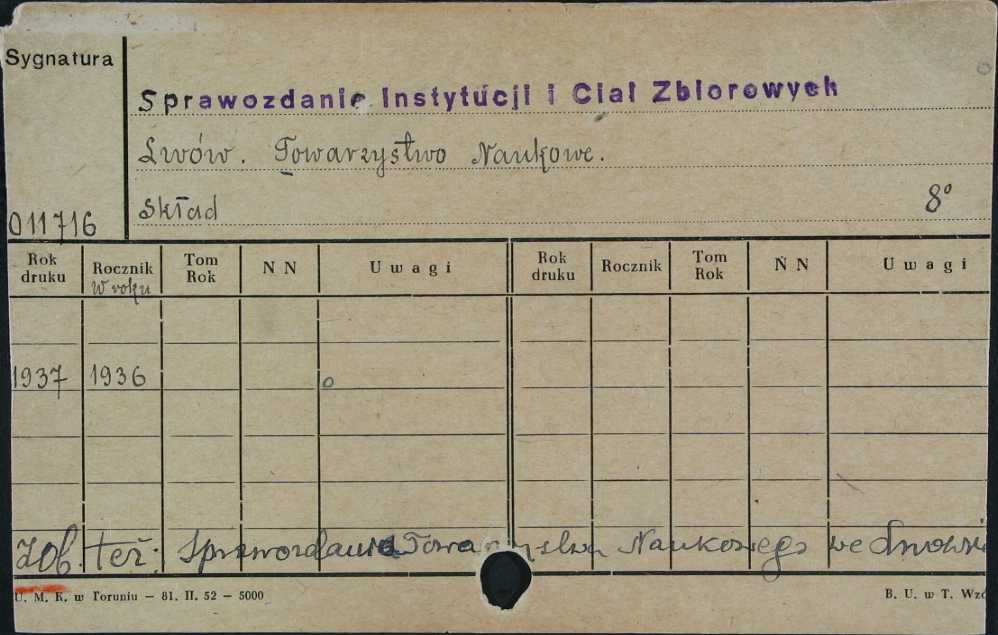 Sygnatura
Sprawozdanie Instytucji i Ciał Zbiorowych
Lwów. Towarzystwo Naukowe.
Skład 8°
011716
Rok druku Rocznik Tom Rok N N Uwagi Rok druku Rocznik Tom Rok N N Uwagi
W roku
1937 1936 o
Zob. też: Sprawozdania Towarzystwa Naukowego we Lwowie
U. M. K. w Toruniu — 81. II. 52 — 5000 B. U. w T.